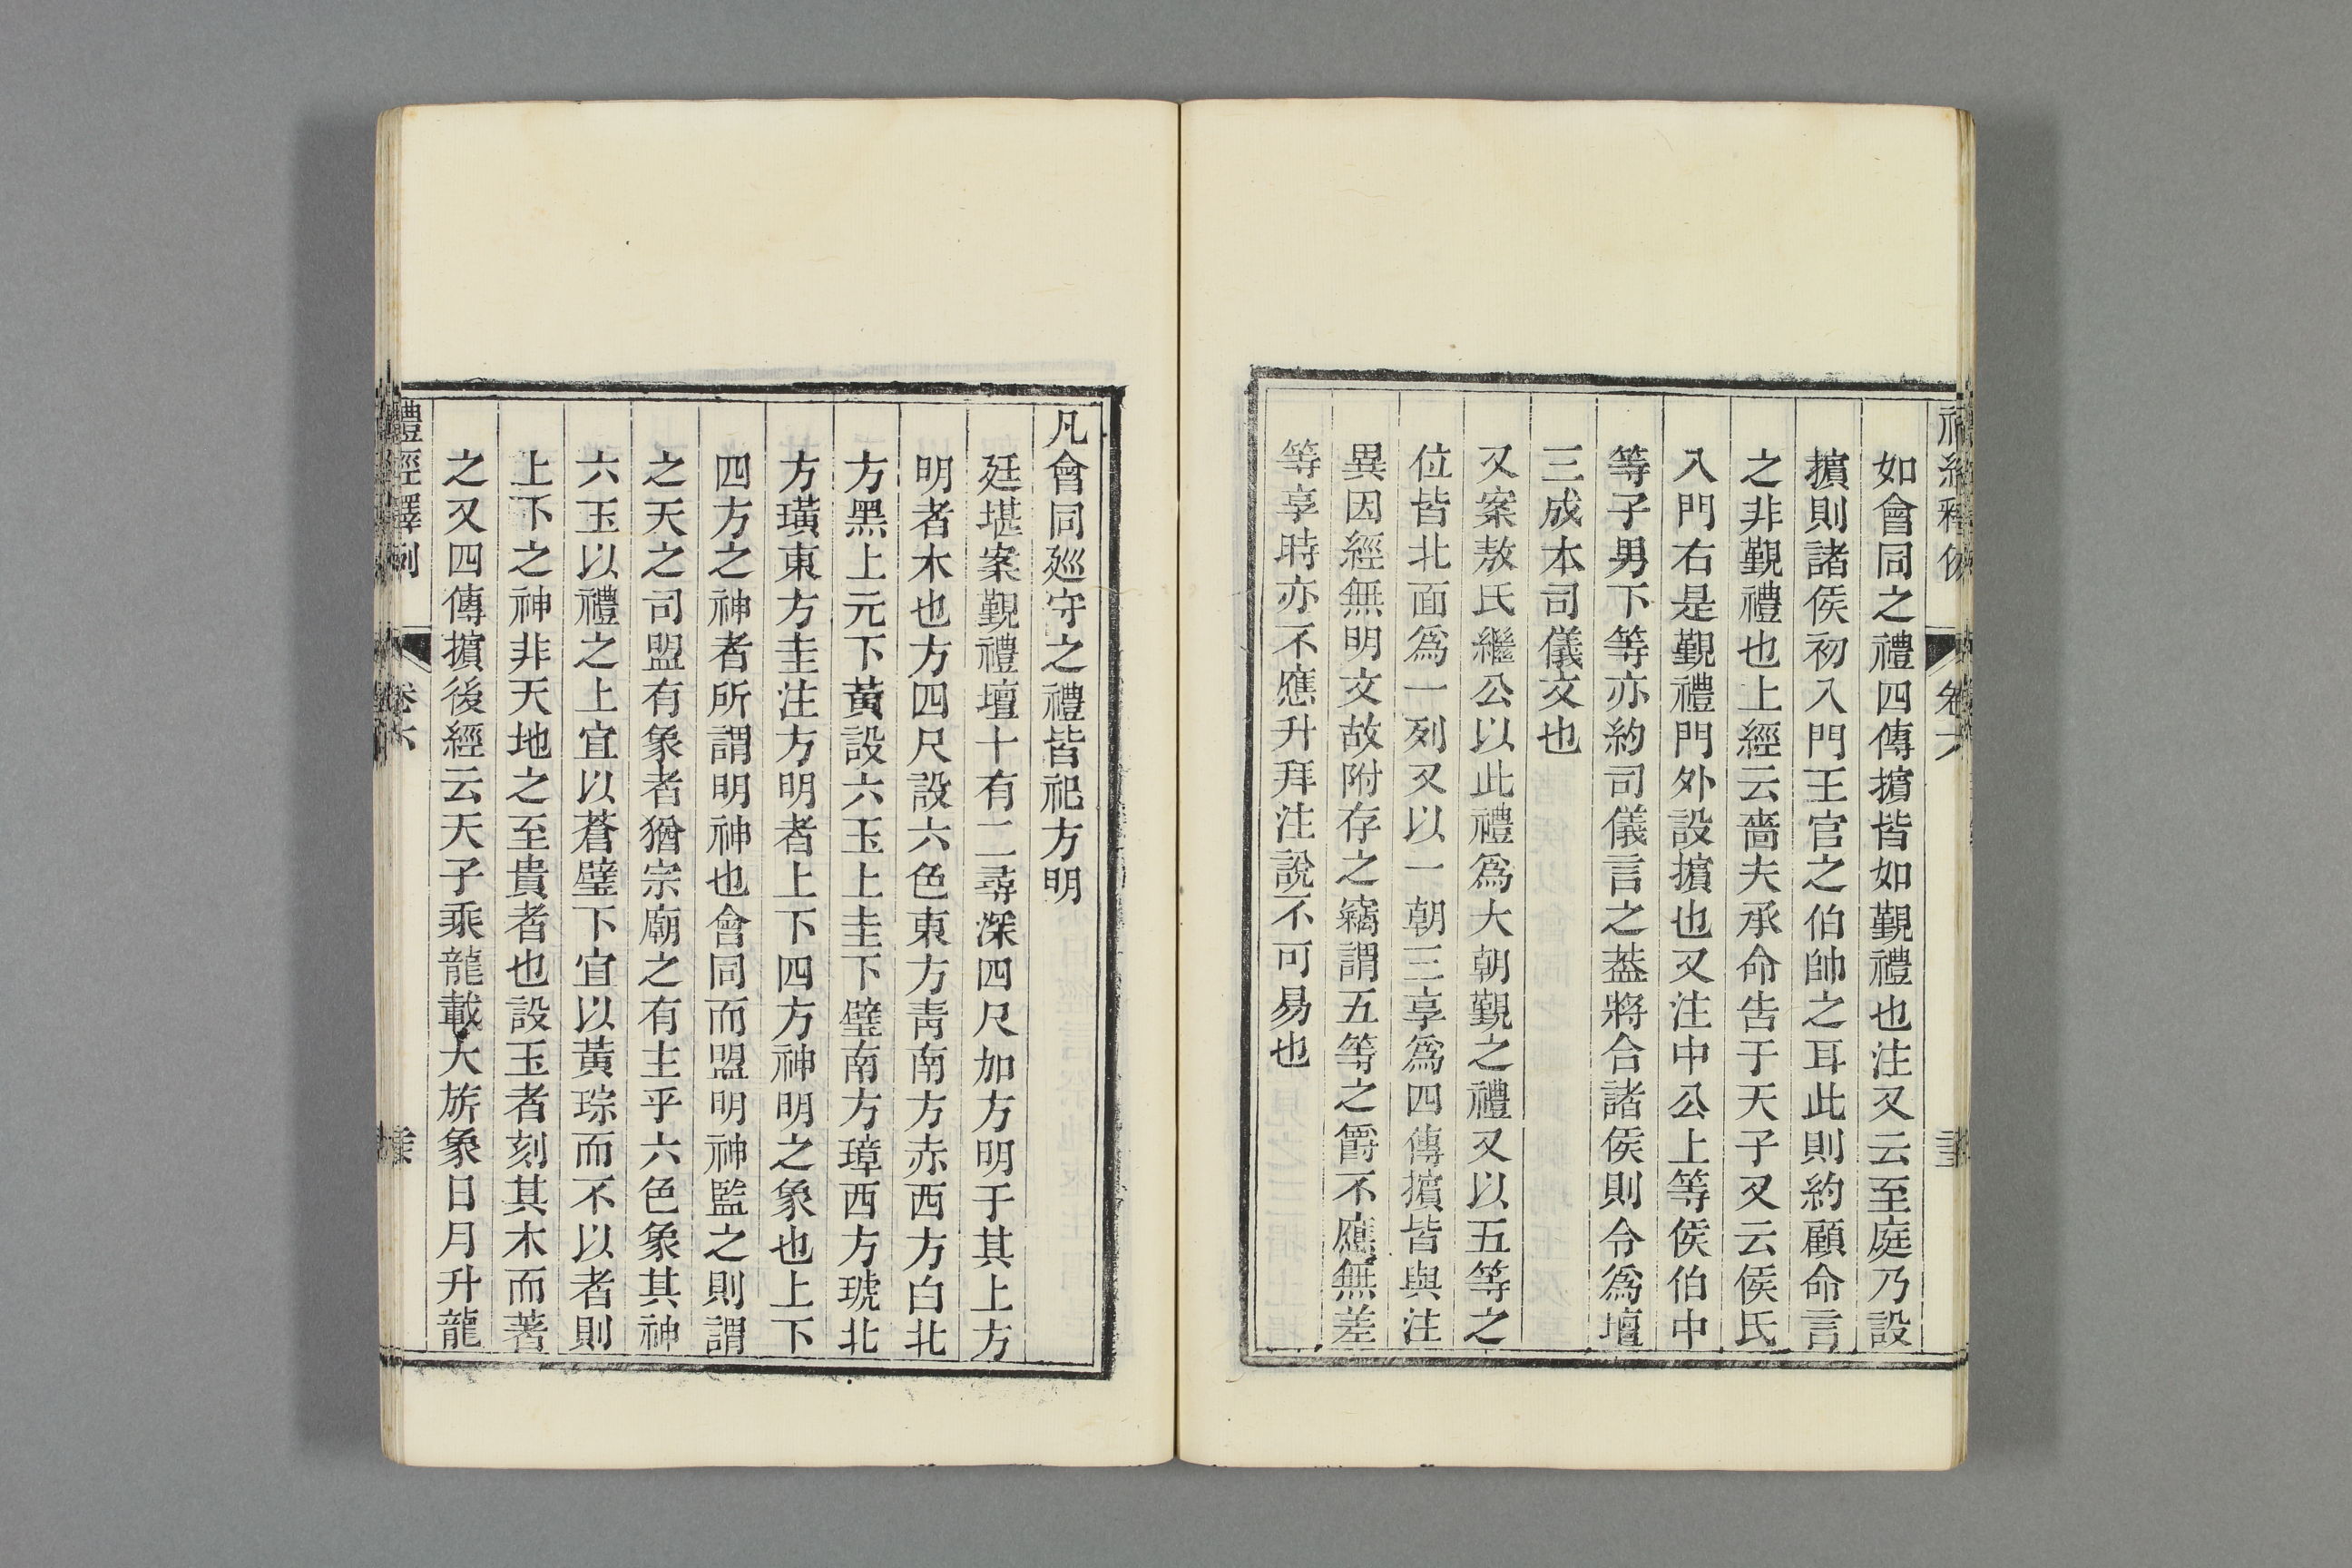 如會同之禮四傳擯皆如覲禮也注又云至庭乃設
擯則諸侯初入門王官之伯帥之耳此則約顧命言
之非覲禮也上經云嗇夫承命告于天子又云侯氏
入門右是覲禮門外設擯也又注中公上等侯伯中
等子男下等亦約司儀言之葢將合諸侯則令爲壇
三成本司儀文也
又案敖氏繼公以此禮爲大朝覲之禮又以五等之
位皆北面爲一列又以一朝三享爲四傳擯皆與注
異因經無明文故附存之竊謂五等之爵不應無差
等享時亦不應升拜注說不可易也
凡會同廵守之禮皆祀方明
廷堪案覲禮壇十有二尋深四尺加方明于其上方
明者木也方四尺設六色東方靑南方赤西方白北
方黑上元下黃設六玉上圭下璧南方璋西方琥北
方璜東方圭注方明者上下四方神明之象也上下
四方之神者所謂明神也會同而盟明神監之則謂
之天之司盟有象者猶宗廟之有主乎六色象其神
六玉以禮之上宜以蒼璧下宜以黃琮而不以者則
上下之神非天地之至貴者也設玉者刻其木而著
之又四傳擯後經云天子乘龍載大旂象日月升龍
禮經釋例 卷六